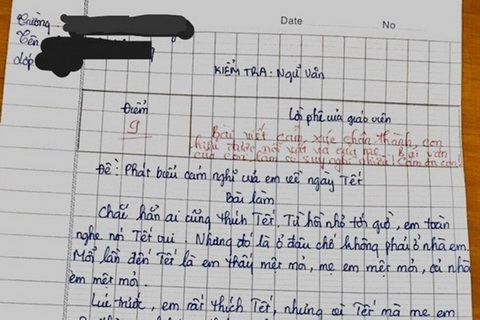 Date No
Trường
Tên
Lớp
KIỂM TRA: NGỮ VĂN
Điểm Lời phê của giáo viên
9 Bài viết cảm xúc chân thành, con
hiểu được nỗi vất vả của mẹ. Bài văn
của con làm cô suy nghĩ nhiều! Cảm ơn con!
Đề: Phát biểu cảm nghĩ của em về ngày Tết
Bài làm
Chắc hẳn ai cũng thích Tết. Từ hồi nhỏ tới giờ, em toàn
nghe nói Tết vui. Nhưng đó là ở đâu chớ không phải ở nhà em.
Mỗi lần đến Tết là em thấy mệt mỏi, mẹ em mệt mỏi, cả nhà
em mệt mỏi.
Lúc trước, em rất thích Tết, nhưng vì Tết mà mẹ em